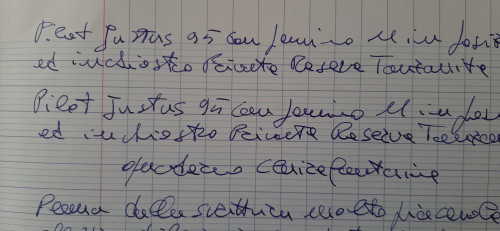 Pilot Justus 95 con pennino M in posi
ed inchiostro Private Reserve Tanzanite
Pilot Justus 95 con pennino M in pos
ed inchiostro Private Reserve Tanzan
quaderno Clairefontaine
Penna dalla scrittura molto piacevole